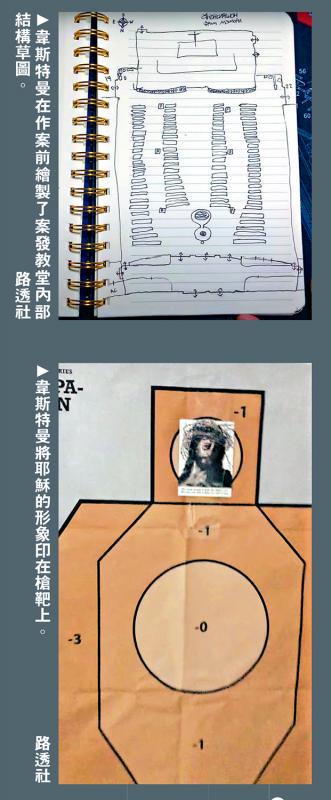 ▶韋斯特曼在作案前繪製了案發教堂內部
結構草圖。 路透社
N
W
56
60
▶韋斯特曼將耶穌的形象印在槍靶上。
路透社
RIES
PA-
N
-1
-1
-0
-3
-1